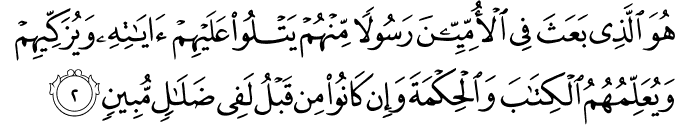 هُوَ ٱلَّذِى بَعَثَ فِى ٱلْأُمِّيِّـۧنَ رَسُولًا مِّنْهُمْ يَتْلُوا۟ عَلَيْهِمْ ءَايَـٰتِهِۦ وَيُزَكِّيهِمْ
وَيُعَلِّمُهُمُ ٱلْكِتَـٰبَ وَٱلْحِكْمَةَ وَإِن كَانُوا۟ مِن قَبْلُ لَفِى ضَلَـٰلٍ مُّبِينٍ ٢